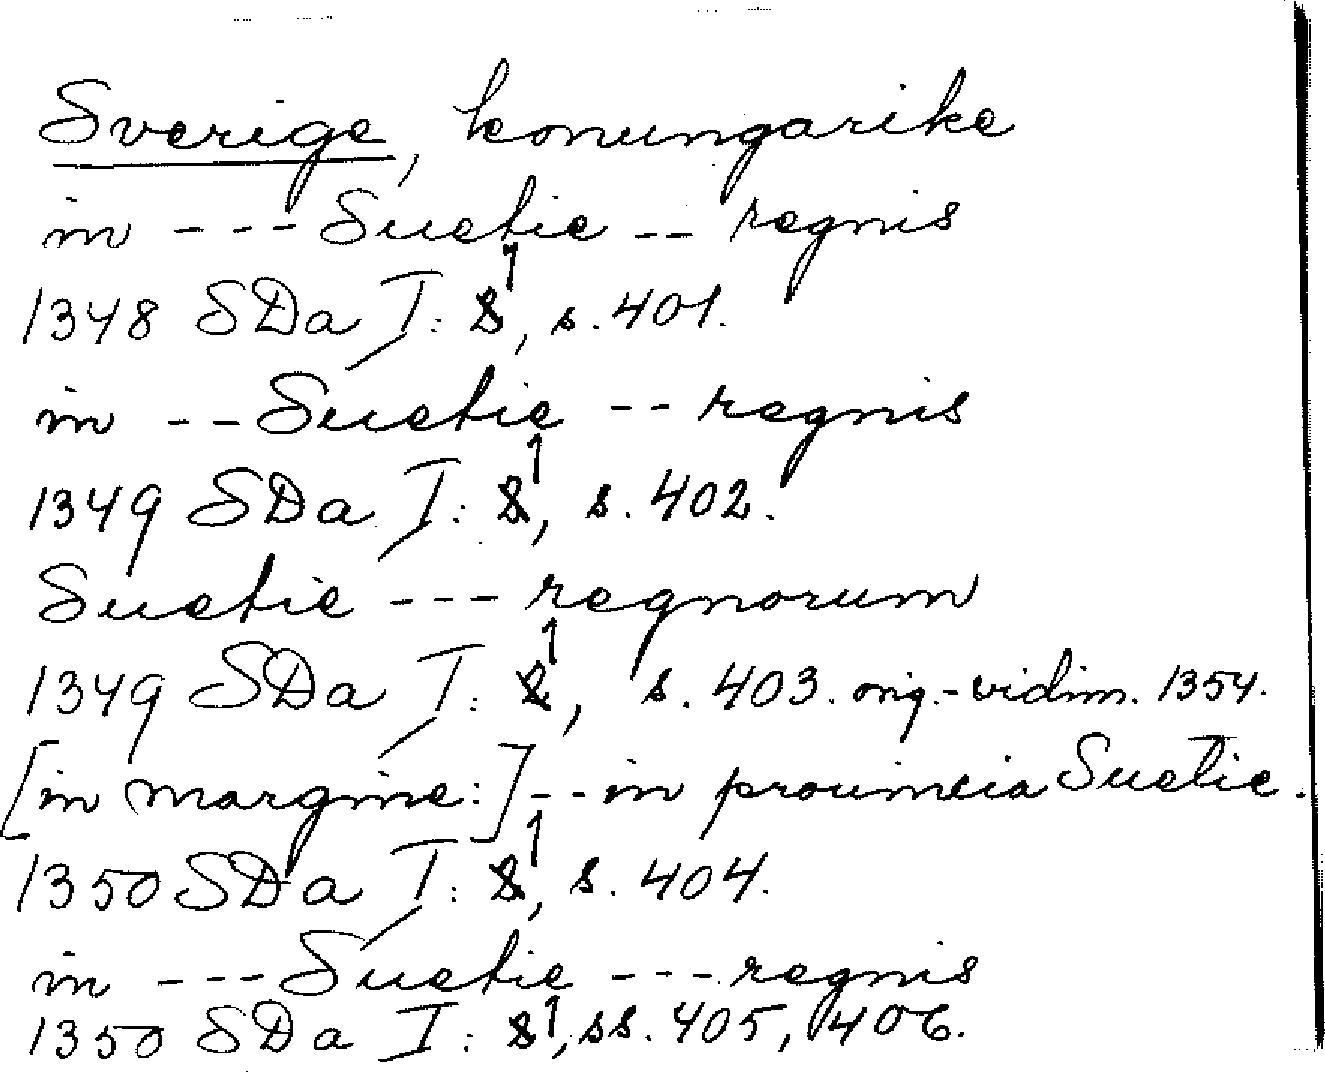 Sverige, konungarike
in --- Suetie -- regnis
1348 SDa I: 1, s. 401.
in -- Suetie -- regnis
1349 SDa I: 1, s. 402.
Suetie --- regnorum
1349 SDa I: 1, s. 403. orig.-vidim. 1354.
[in margine:] -- in prouincia Suetie.
1350 SDa I: 1, s. 404.
in --- Suetie --- regnis
1350 SDa I: 1, ss. 405, 406.